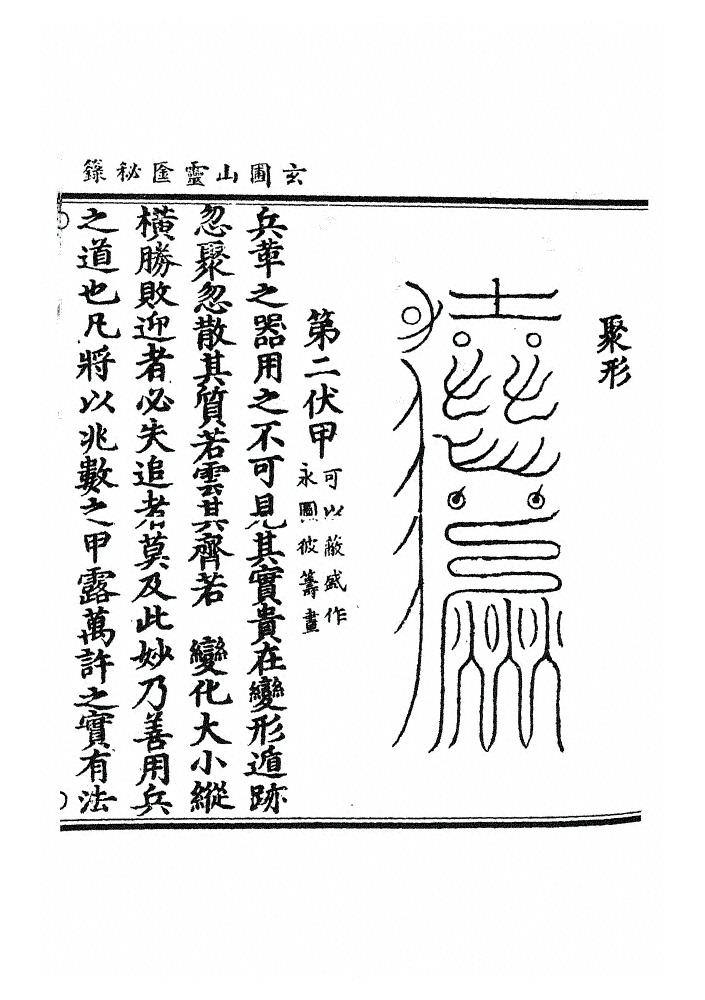 玄圃山靈匧秘籙
聚形
第二伏甲
可以蔽威作
永圖彼籌畫
兵革之器用之不可見其實貴在變形遁跡
忽聚忽散其質若雲其齊若 變化大小縱
橫勝敗迎者必失追者莫及此妙乃善用兵
之道也凡將以兆數之甲露萬許之實有法